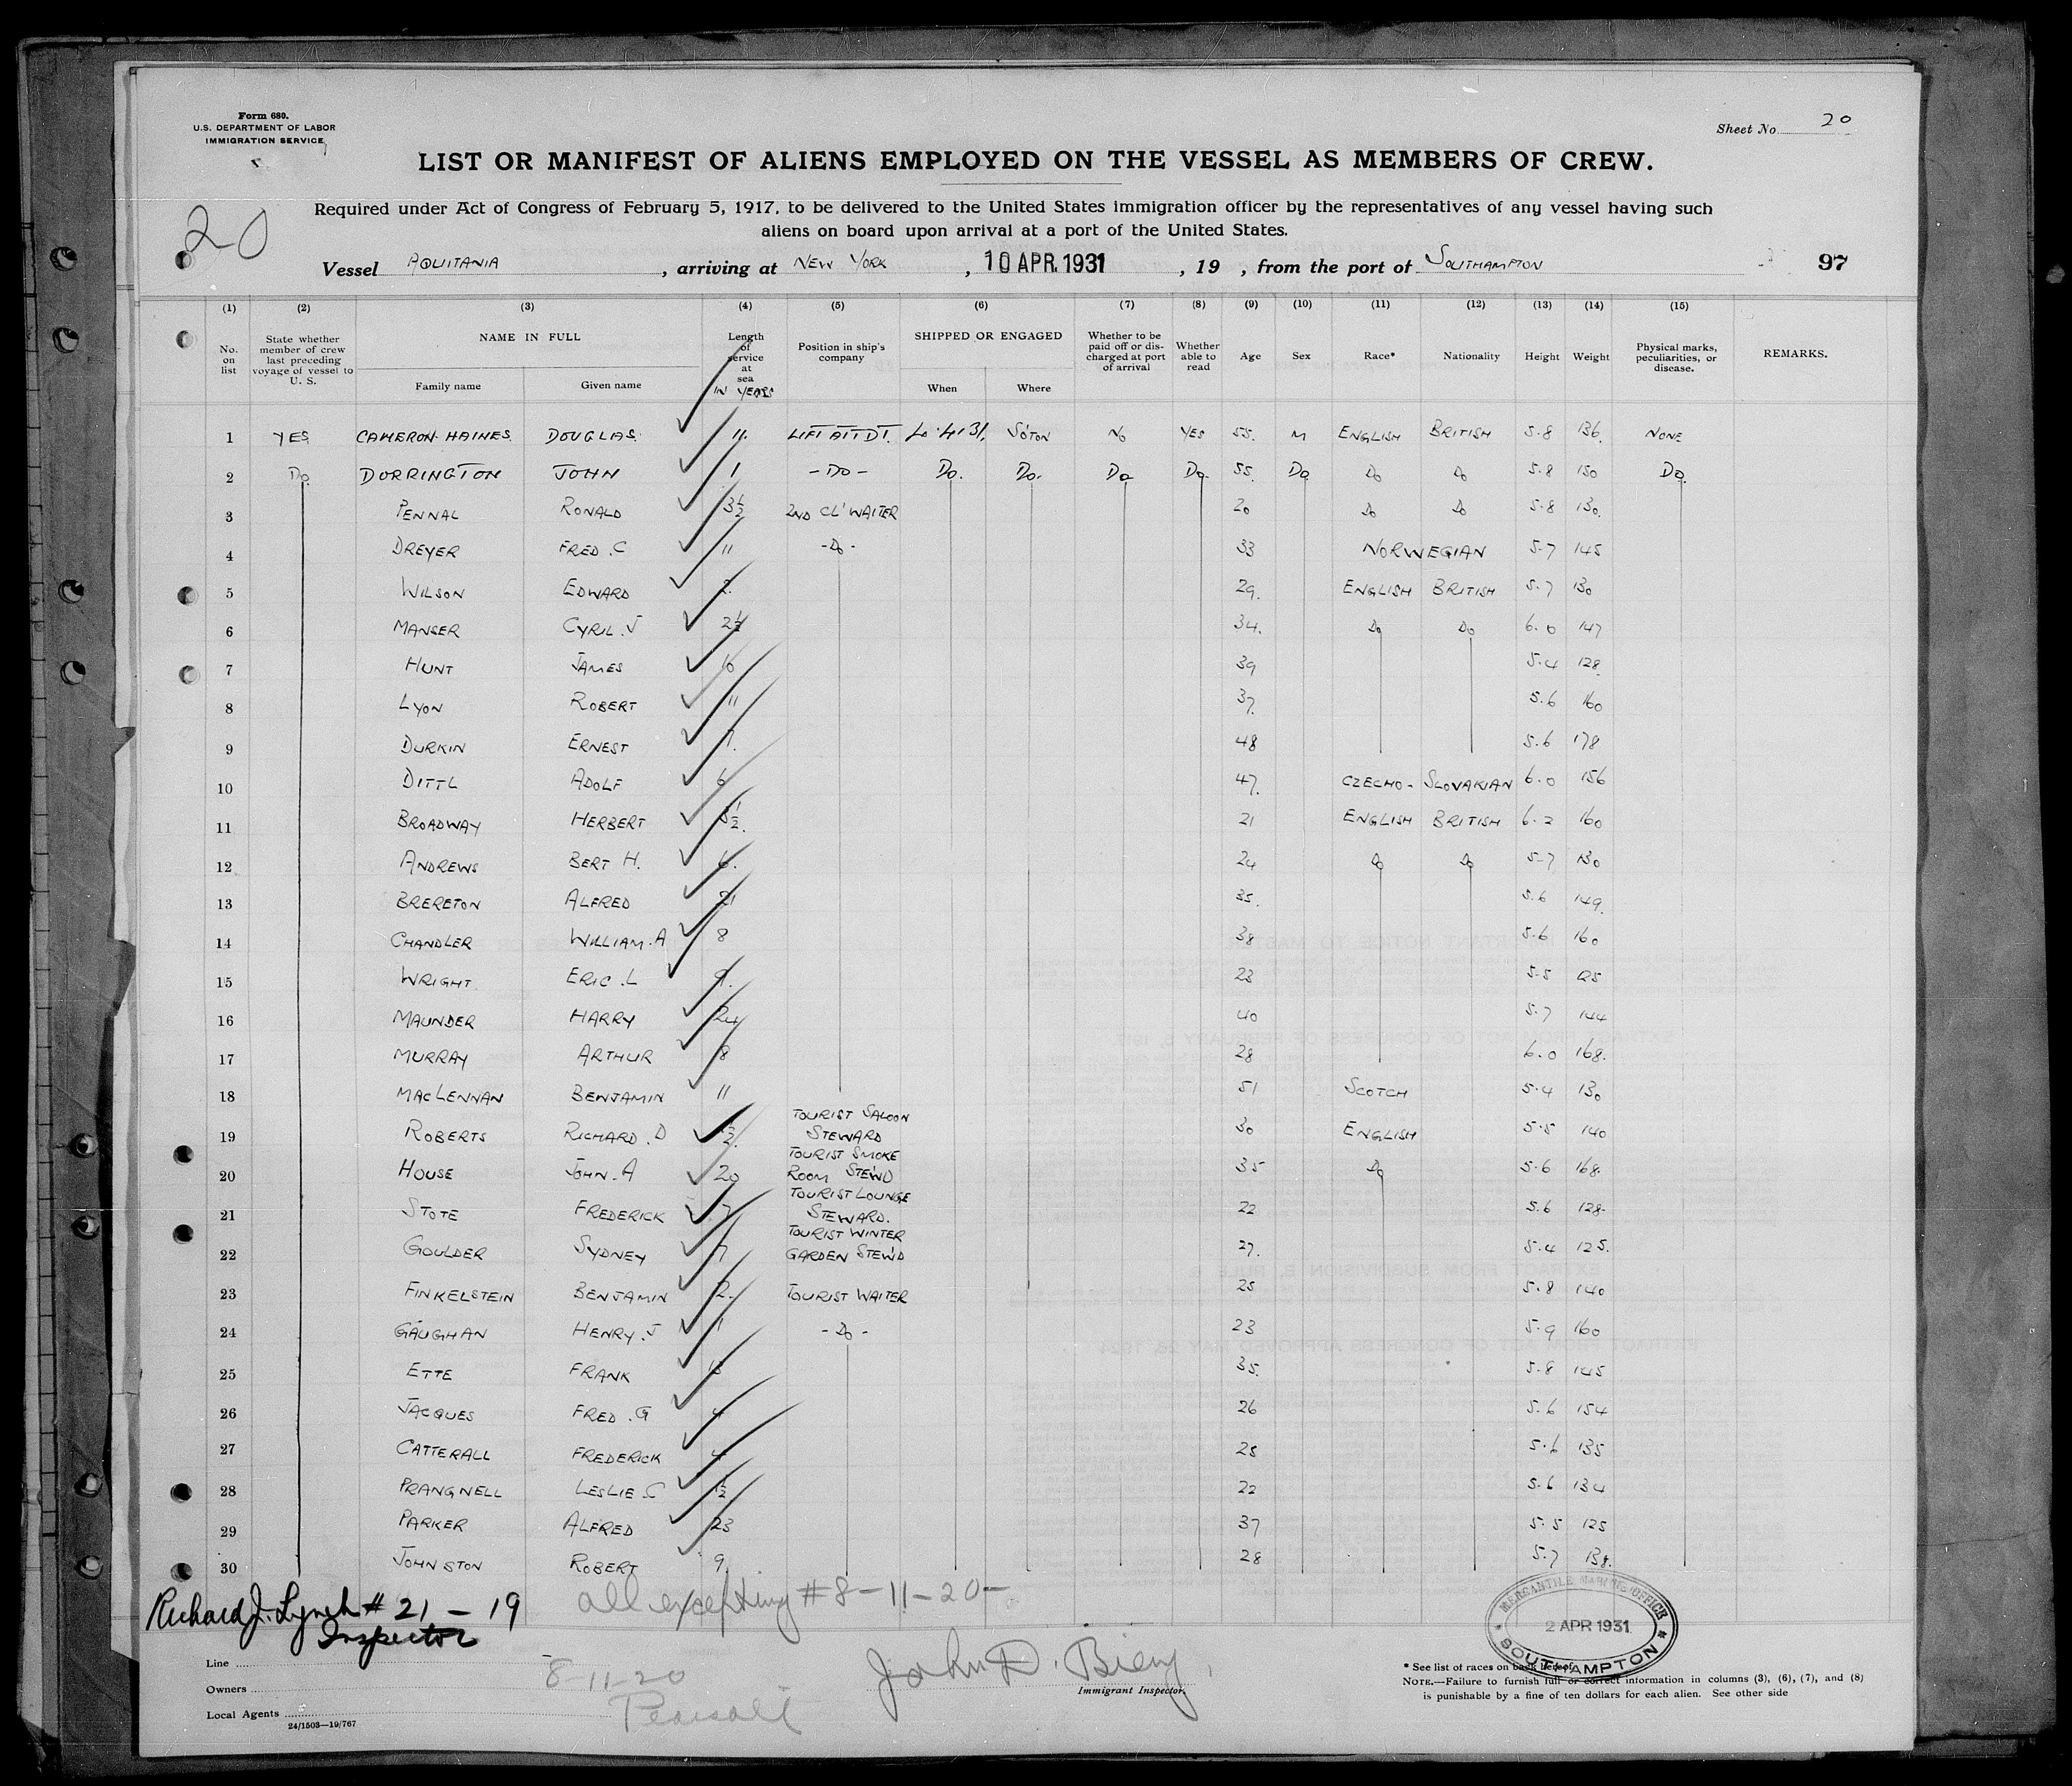 Form 680.
U.S. DEPARTMENT OF LABOR
IMMIGRATION SERVICE
Sheet No. 20
LIST OR MANIFEST OF ALIENS EMPLOYED ON THE VESSEL AS MEMBERS OF CREW.
20
Required under Act of Congress of February 5, 1917, to be delivered to the United States immigration officer by the representatives of any vessel having such
aliens on board upon arrival at a port of the United States.
Vessel AQUITANIA, arriving at NEW YORK, 10 APR. 1931, 19 , from the port of SOUTHAMPTON 97
(1) (2) (3) (4) (5) (6) (7) (8) (9) (10) (11) (12) (13) (14) (15)
No. on list State whether member of crew last preceding voyage of vessel to U. S. NAME IN FULL Family name Given name Length of service at sea IN YEARS Position in ship's company SHIPPED OR ENGAGED When Where Whether to be paid off or discharged at port of arrival Whether able to read Age Sex Race* Nationality Height Weight Physical marks, peculiarities, or disease. REMARKS.
1 YES CAMERON-HAINES DOUGLAS 11. LIFT ATTDT. S'OTON NO YES 55. M ENGLISH BRITISH 5-8 136. NONE
2 Do. DORRINGTON JOHN 1 -DO- Do. Do. Do Do. 55. Do Do Do 5.8 150 Do.
3 PENNAL RONALD 3½ 2ND CL' WAITER 20 Do Do 5-8 130.
4 DREYER FRED. C 11 -Do- 33 NORWEGIAN 5-7 145
5 WILSON EDWARD 2. 29. ENGLISH BRITISH 5.7 130
6 MANSER CYRIL. J 2½ 34. Do Do 6.0 147
7 HUNT JAMES 16 39 5.4 128
8 LYON ROBERT 11 37. 5.6 160
9 DURKIN ERNEST 7. 48 5.6 178
10 DITTL ADOLF 6 47. CZECHO-SLOVAKIAN 6.0 156
11 BROADWAY HERBERT 21 ENGLISH BRITISH 6.2 160
12 ANDREWS BERT H. 6. 24 Do Do 5-7 130
13 BRERETON ALFRED 21 35. 5.6 149.
14 CHANDLER WILLIAM. A 8 38 5.6 160
15 WRIGHT ERIC. L 9. 23 5.5 125
16 MAUNDER HARRY 24 40 5.7 144
17 MURRAY ARTHUR 8 28 6.0 168.
18 MACLENNAN BENJAMIN 11 51 SCOTCH 5.4 130
19 ROBERTS RICHARD. D TOURIST SALOON STEWARD 30 ENGLISH 5.5 140
20 HOUSE JOHN. A 20 TOURIST SMOKE ROOM STEW'D 35 Do 5.6 168.
21 STOTE FREDERICK 7 TOURIST LOUNGE STEWARD. 22 5.6 128.
22 GOULDER SYDNEY 7 TOURIST WINTER GARDEN STEW'D 27. 5.4 125.
23 FINKELSTEIN BENJAMIN 2. TOURIST WAITER 25 5.8 140
24 GAUGHAN HENRY. J 1 -Do- 23 5.9 160
25 ETTE FRANK 35. 5.8 145
26 JACQUES FRED. G 4 26 5.6 154
27 CATTERALL FREDERICK 4 25 5.6 135
28 PRANGNELL LESLIE. C 22 5.6 134
29 PARKER ALFRED 23 37 5.5 125
30 JOHNSTON ROBERT 9 28 5.7 138.
Richard J. Lynch # 21 - 19
Inspector
all excepting # 8 - 11 - 20 -
MERCANTILE MARINE OFFICE
2 APR 1931
SOUTHAMPTON
Line
8-11-20
Owners
John D.
Immigrant Inspector.
Local Agents
24/1503—19/767
* See list of races on back hereof.
NOTE.—Failure to furnish full or correct information in columns (3), (6), (7), and (8)
is punishable by a fine of ten dollars for each alien. See other side